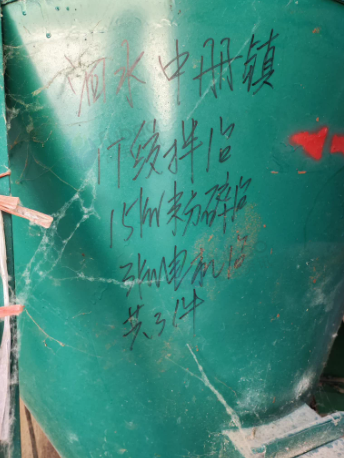 衡水中册镇
1T绞拌1台
15kw粉碎1台
3kw电机1台
共3件